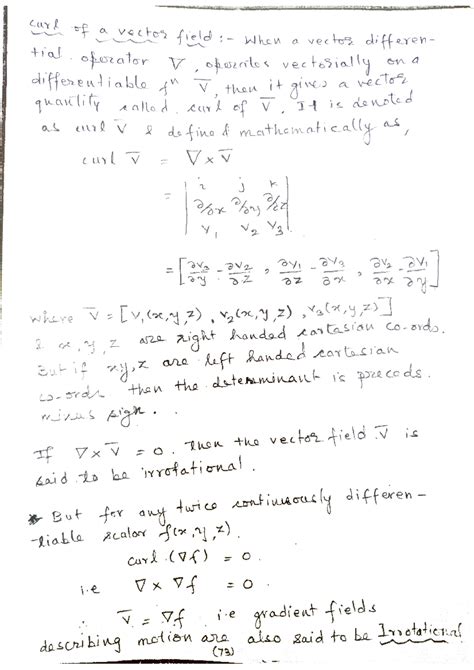 curl of a vector field :- When a vector differen-
tial operator ∇, operates vectorially on a
differentiable fⁿ V̄, then it gives a vector
quantity called curl of V̄. It is denoted
as curl V̄ & defined mathematically as,
curl V̄ = ∇ × V̄
= | i j k
∂/∂x ∂/∂y ∂/∂z
V₁ V₂ V₃ |
= [∂V₃/∂y - ∂V₂/∂z , ∂V₁/∂z - ∂V₃/∂x , ∂V₂/∂x - ∂V₁/∂y]
where V̄ = [V₁(x,y,z) , V₂(x,y,z) , V₃(x,y,z)]
& x, y, z are right handed cartesian co-ords.
But if x,y,z are left handed cartesian
co-ords then the determinant is precods.
minus sign.
If ∇ × V̄ = 0. Then the vector field V̄ is
said to be irrotational.
* But for any twice continuously differen-
tiable scalar f(x,y,z).
curl (∇f) = 0.
i.e ∇ × ∇f = 0
V̄ = ∇f i.e gradient fields
describing motion are also said to be Irrotational
(73)